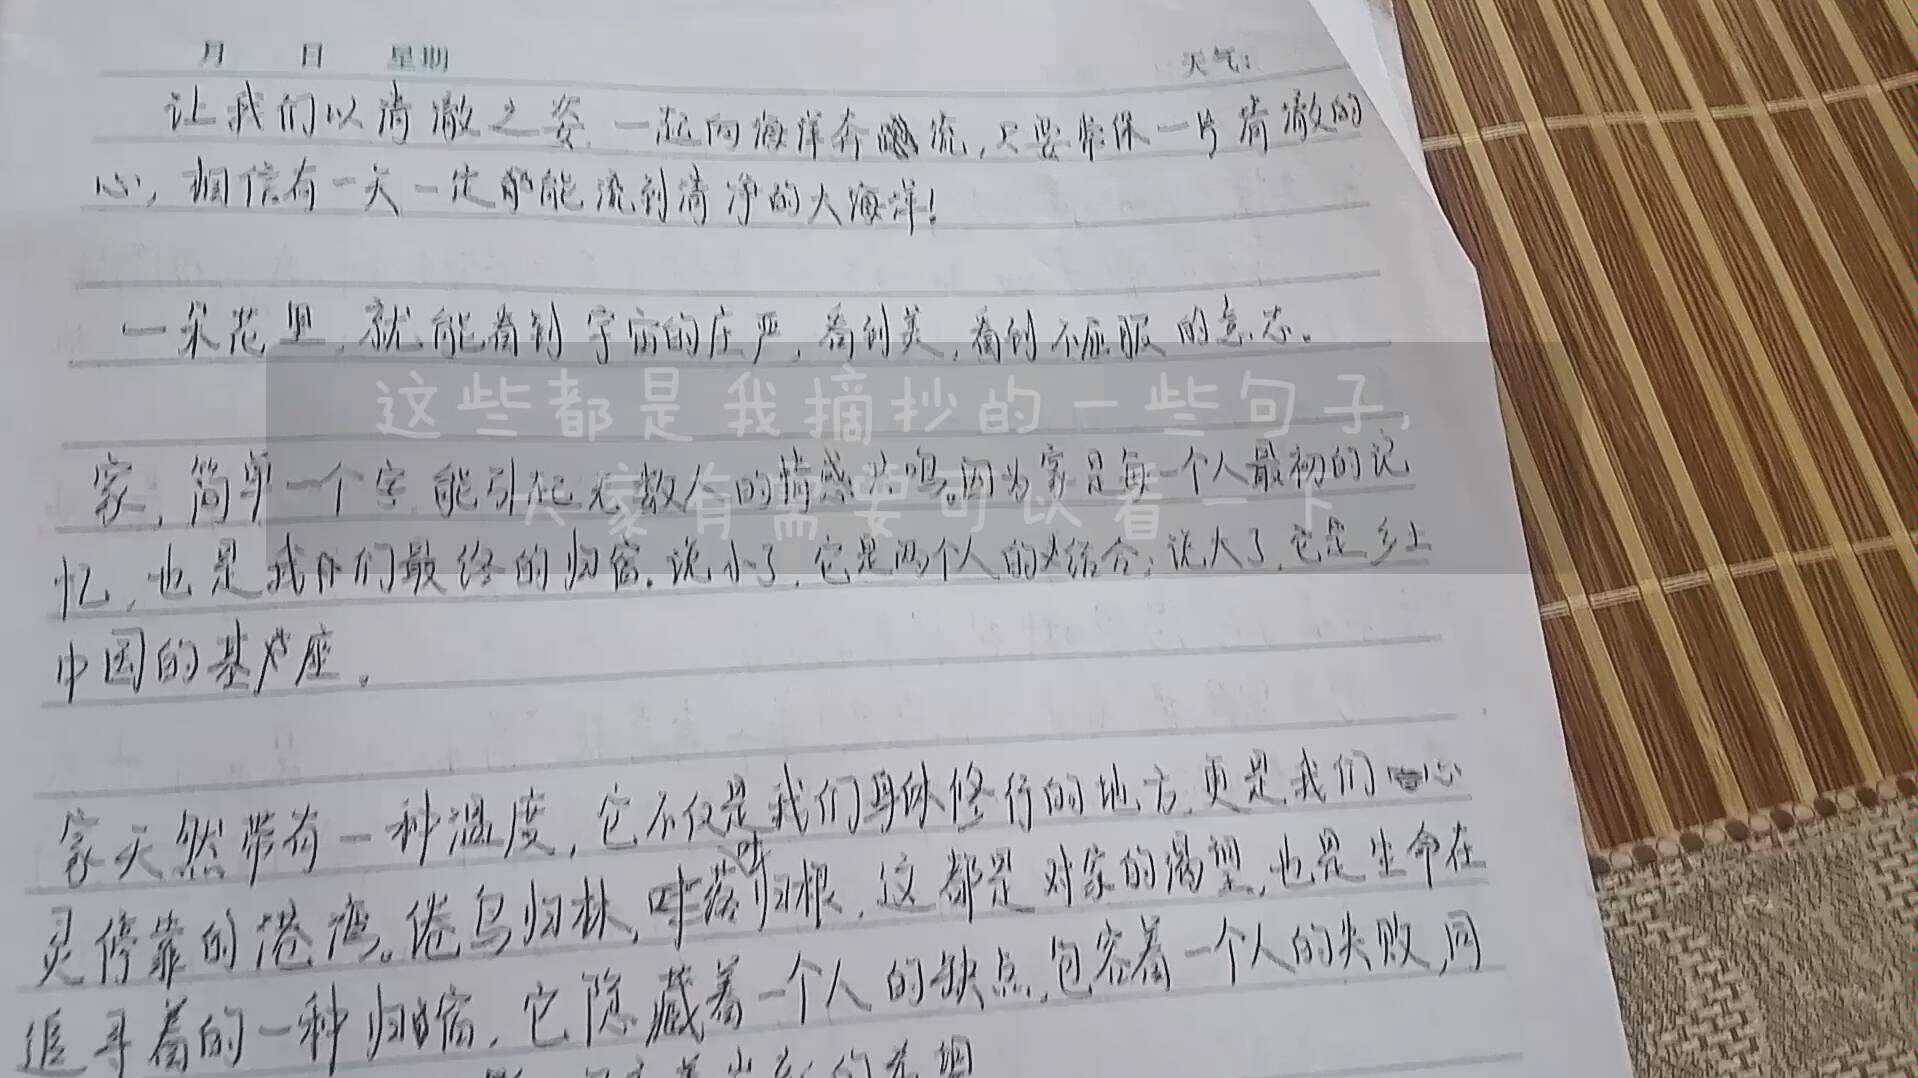 月 日 星期 天气:
让我们以清澈之姿,一起向海洋奔流,只要常保一片清澈的
心,相信有一天一定能流到清净的大海洋!
一朵花里,就能看到宇宙的庄严,看到美,看到不屈服的意志。
这些都是我摘抄的一些句子,
大家有需要可以看一下
家,简单一个字,能引起无数人的情感共鸣。因为家是每一个人最初的记
忆,也是我们最终的归宿。说小了,它是两个人的结合;说大了,它是乡土
中国的基座。
家天然带有一种温度,它不仅是我们身体修行的地方,更是我们心
灵停靠的港湾。倦鸟归林,落叶归根,这都是对家的渴望,也是生命在
追寻着的一种归宿,它隐藏着一个人的缺点,包容着一个人的失败,同
的希望